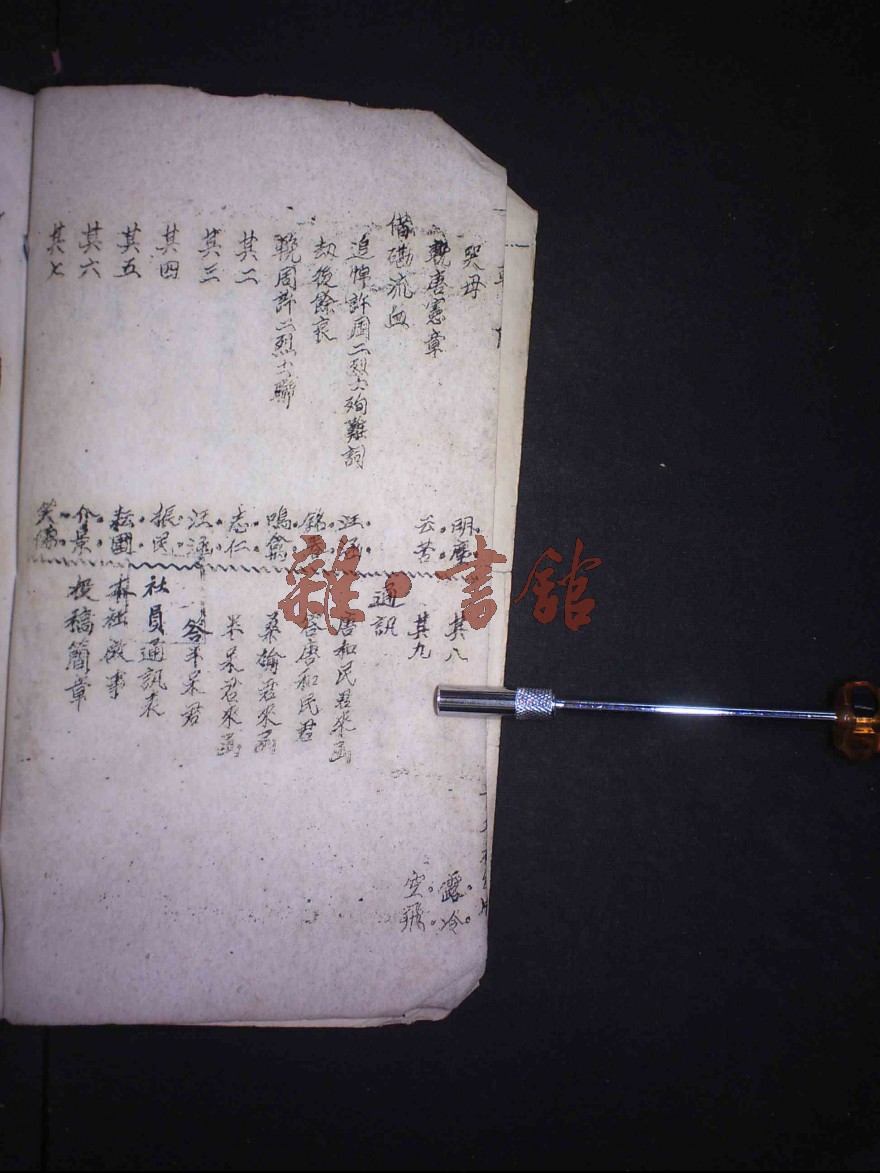 哭母
輓唐憲章 明塵
借磡流血 云苦
追悼許周二烈士殉難詞 汪涵
劫後餘哀
輓周許二烈士聯 鳴
其二 志仁
其三 汪涵
其四 振民
其五 耘圃
其六 介景
其七 笑儒
其八 露冷
其九 空飛
通訊
唐和民君來函
答唐和民君
君來函
半呆君來函
答半呆君
社員通訊表
本社啟事
投稿簡章
雜·書館